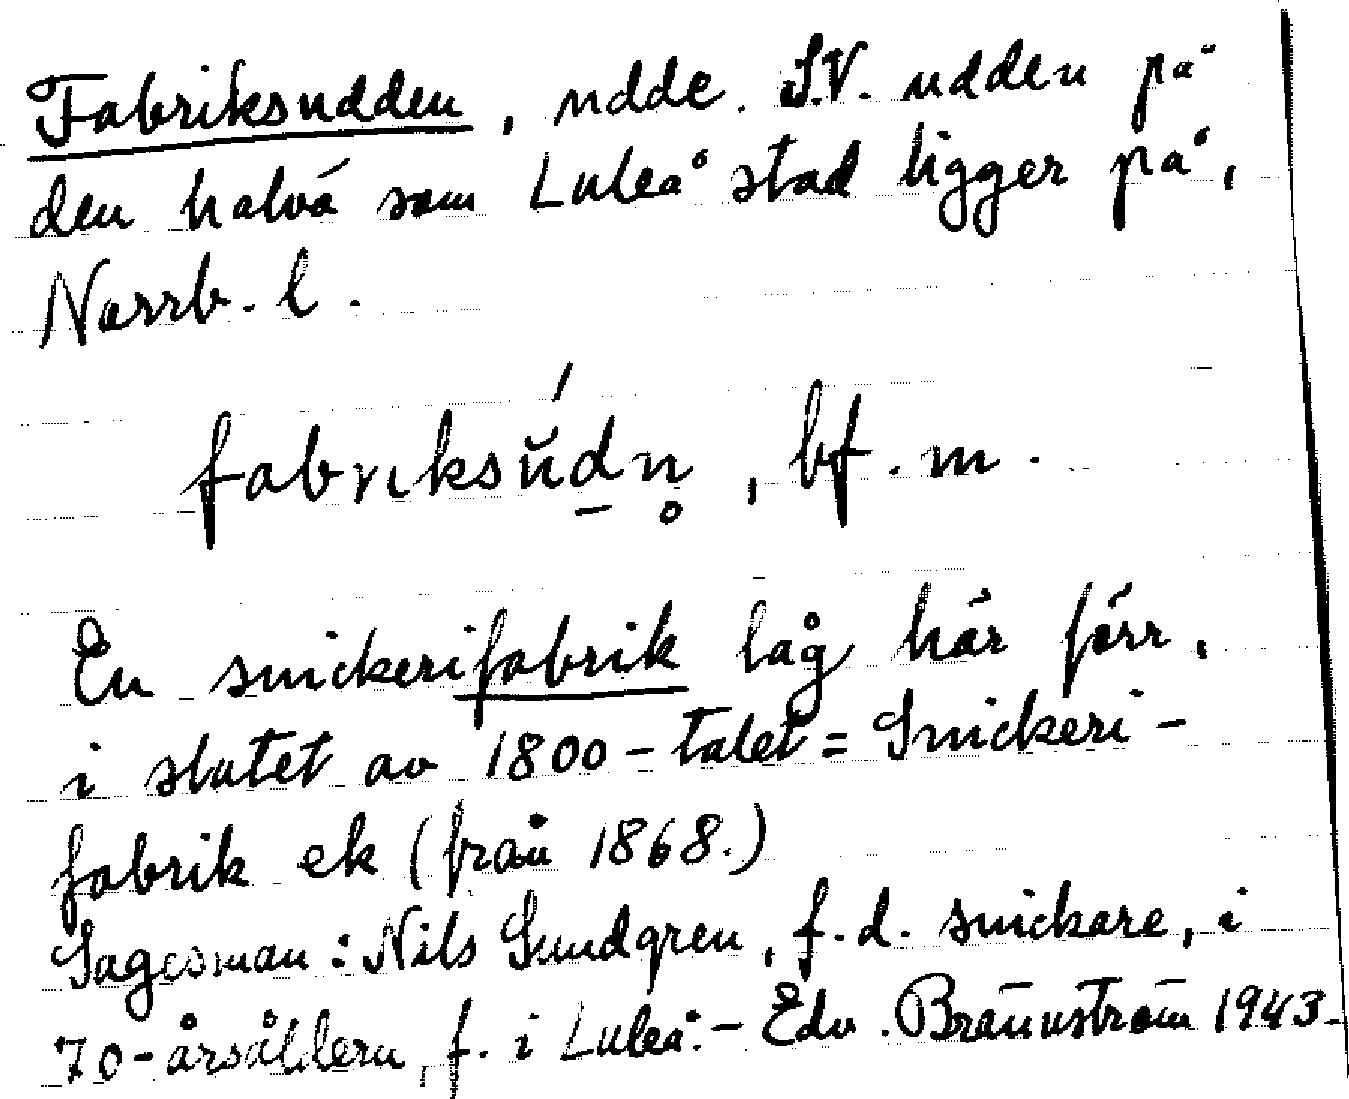 Fabriksudden, udde. S.V. udden på
den halvö som Luleå stad ligger på,
Norrb. l.
fabrıksŭ́d̠n̥, bf. m.
En snickerifabrik låg här förr,
i slutet av 1800-talet = Snickeri-
fabrik ek (från 1868.)
Sagesman: Nils Sundgren, f.d. snickare, i
70-årsåldern, f. i Luleå. - Edv. Brännström 1943.